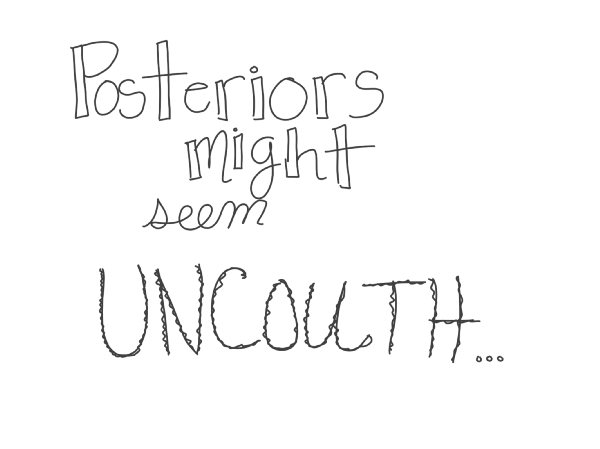 Posteriors
might
seem
UNCOUTH...